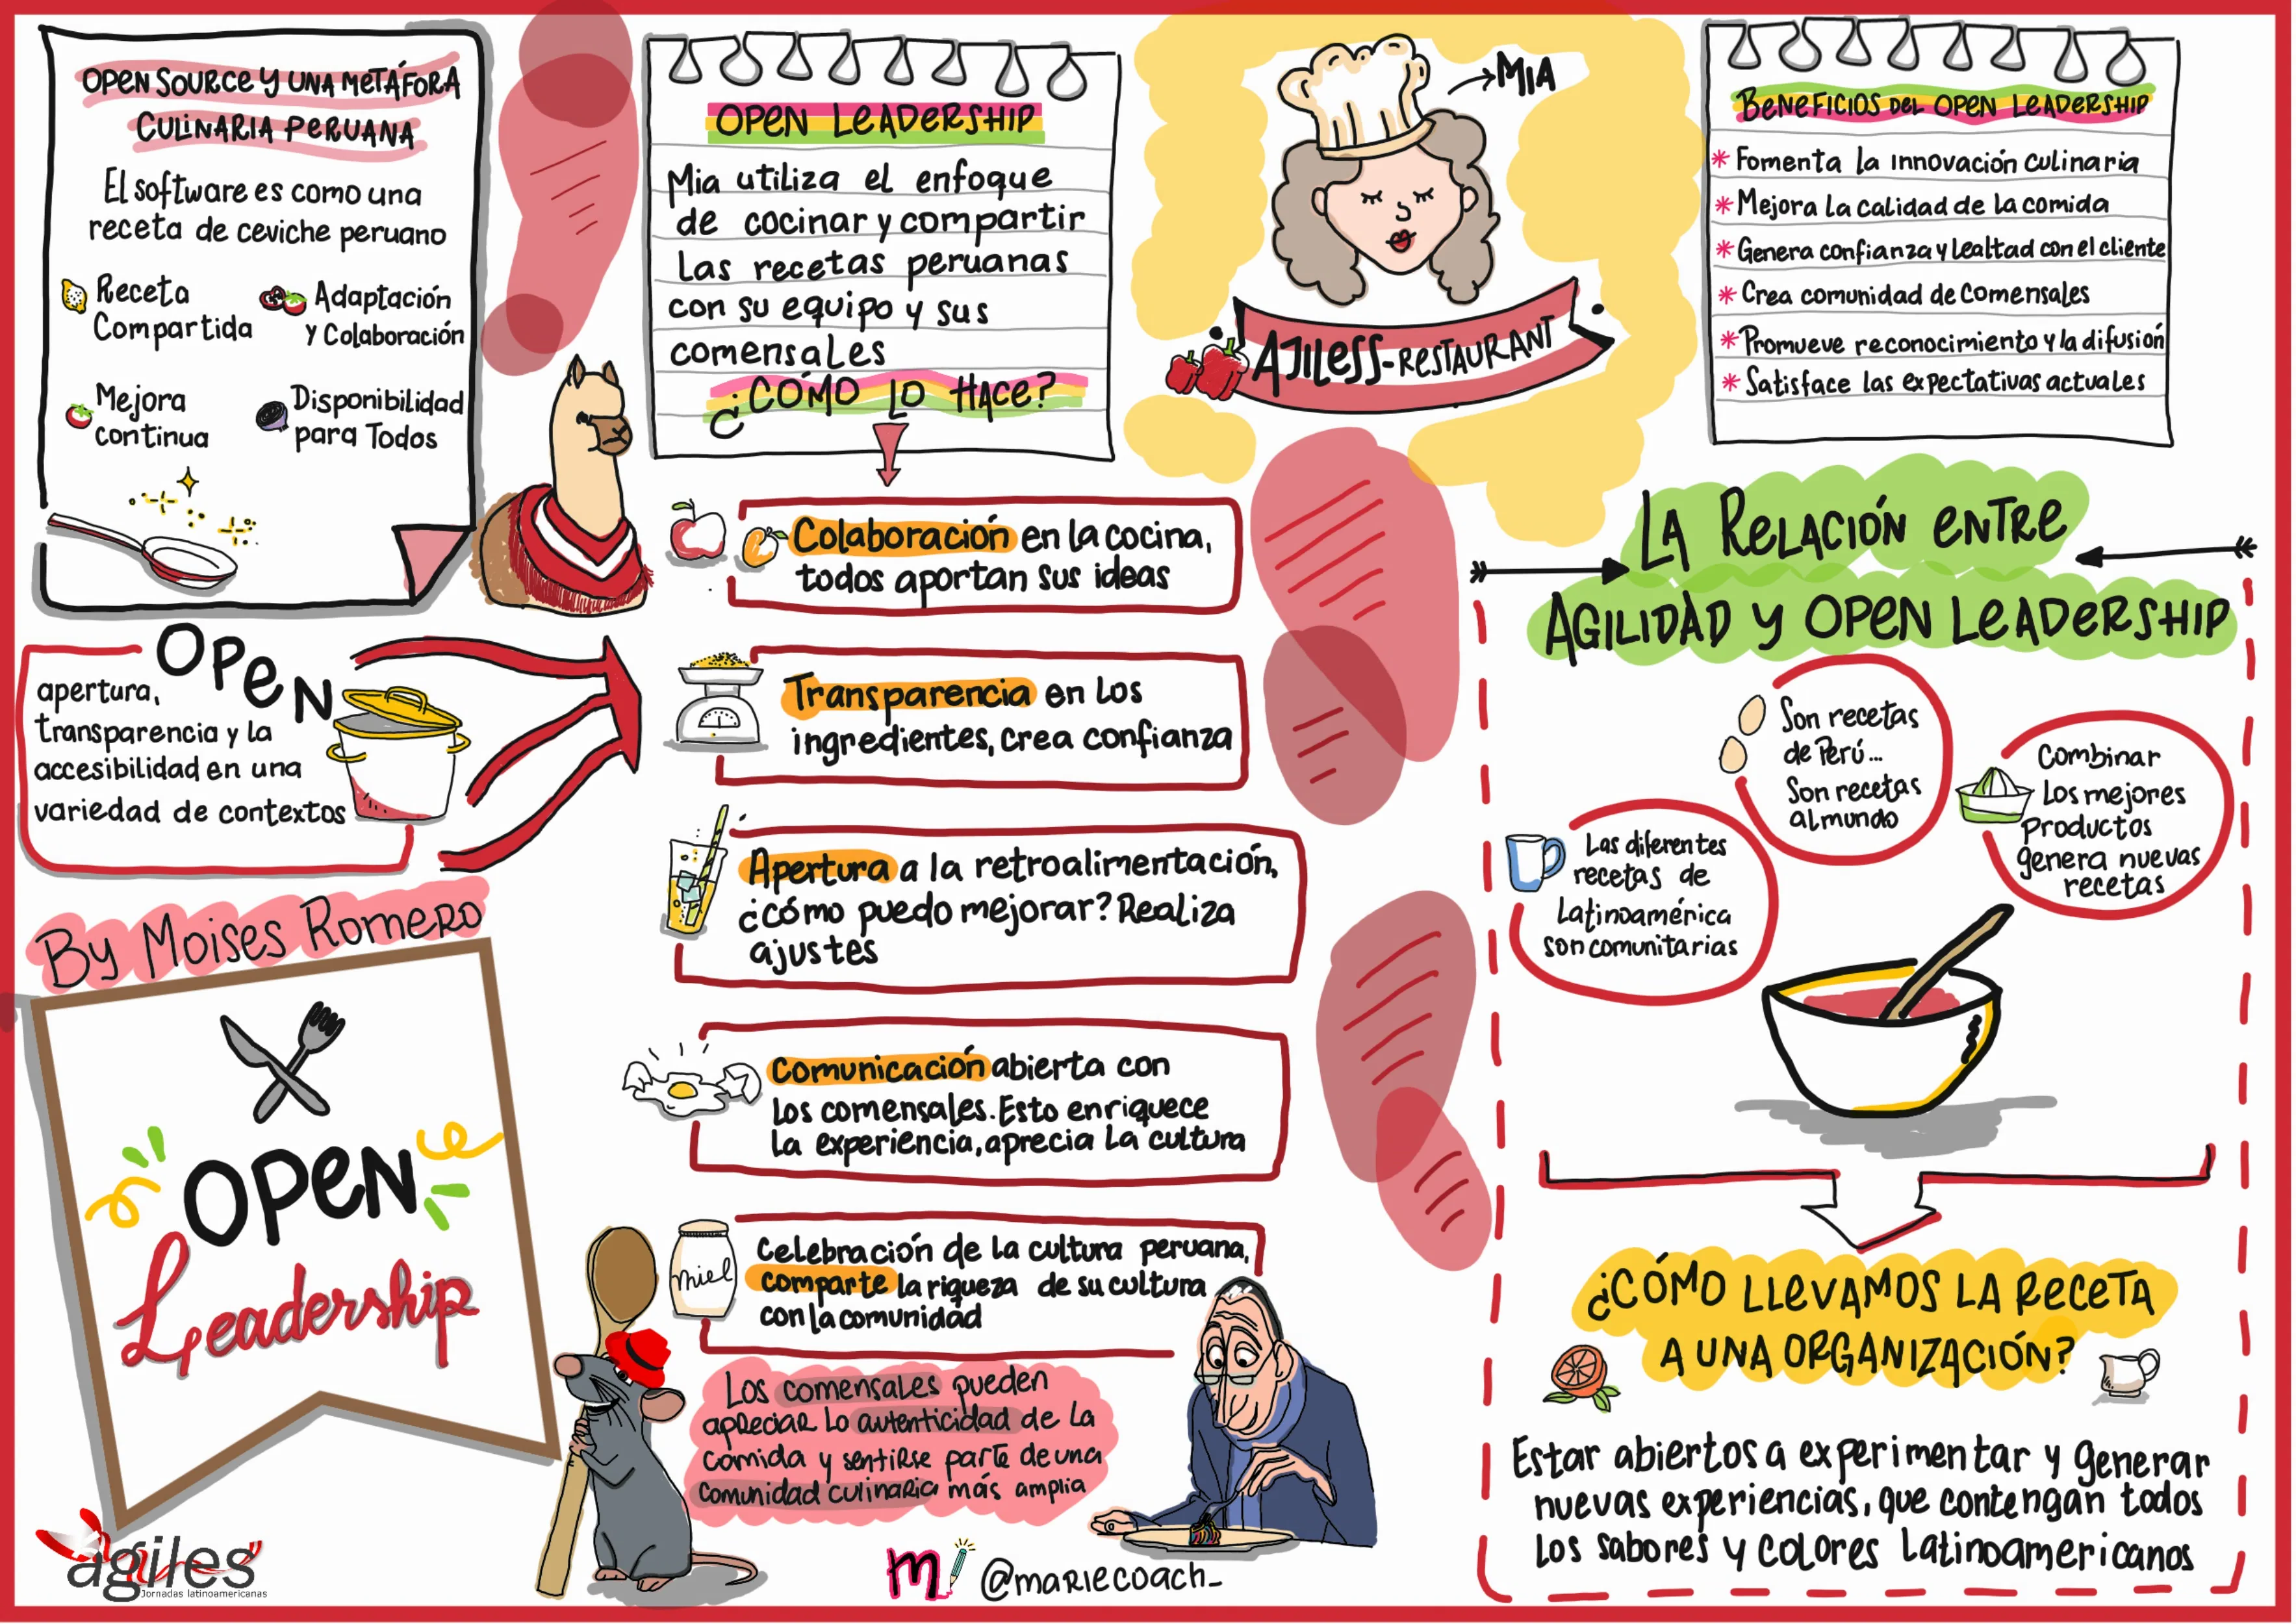 OPEN SOURCE Y UNA METÁFORA
CULINARIA PERUANA
El software es como una
receta de ceviche peruano
Receta
Compartida
Adaptación
y Colaboración
Mejora
continua
Disponibilidad
para Todos
OPEN
apertura,
transparencia y la
accesibilidad en una
variedad de contextos
By Moises Romero
OPEN
Leadership
agiles
Jornadas latinoamericanas
OPEN LEADERSHIP
Mia utiliza el enfoque
de cocinar y compartir
Las recetas peruanas
con su equipo y sus
comensales
¿CÓMO LO HACE?
Colaboración en la cocina,
todos aportan sus ideas
Transparencia en los
ingredientes, crea confianza
Apertura a la retroalimentación,
¿cómo puedo mejorar? Realiza
ajustes
Comunicación abierta con
los comensales. Esto enriquece
la experiencia, aprecia la cultura
miel
Celebración de la cultura peruana,
comparte la riqueza de su cultura
con la comunidad
Los comensales pueden
apreciar lo autenticidad de la
comida y sentirse parte de una
comunidad culinaria más amplia
m
@mariecoach_
MIA
AJILESS-RESTAURANT
BENEFICIOS DEL OPEN LEADERSHIP
* Fomenta la innovación culinaria
* Mejora la calidad de la comida
* Genera confianza y lealtad con el cliente
* Crea comunidad de comensales
* Promueve reconocimiento y la difusión
* Satisface las expectativas actuales
LA RELACIÓN ENTRE
AGILIDAD Y OPEN LEADERSHIP
Las diferentes
recetas de
Latinoamérica
son comunitarias
Son recetas
de Perú...
Son recetas
al mundo
Combinar
Los mejores
Productos
genera nuevas
recetas
¿CÓMO LLEVAMOS LA RECETA
A UNA ORGANIZACIÓN?
Estar abiertos a experimentar y generar
nuevas experiencias, que contengan todos
los sabores y colores latinoamericanos